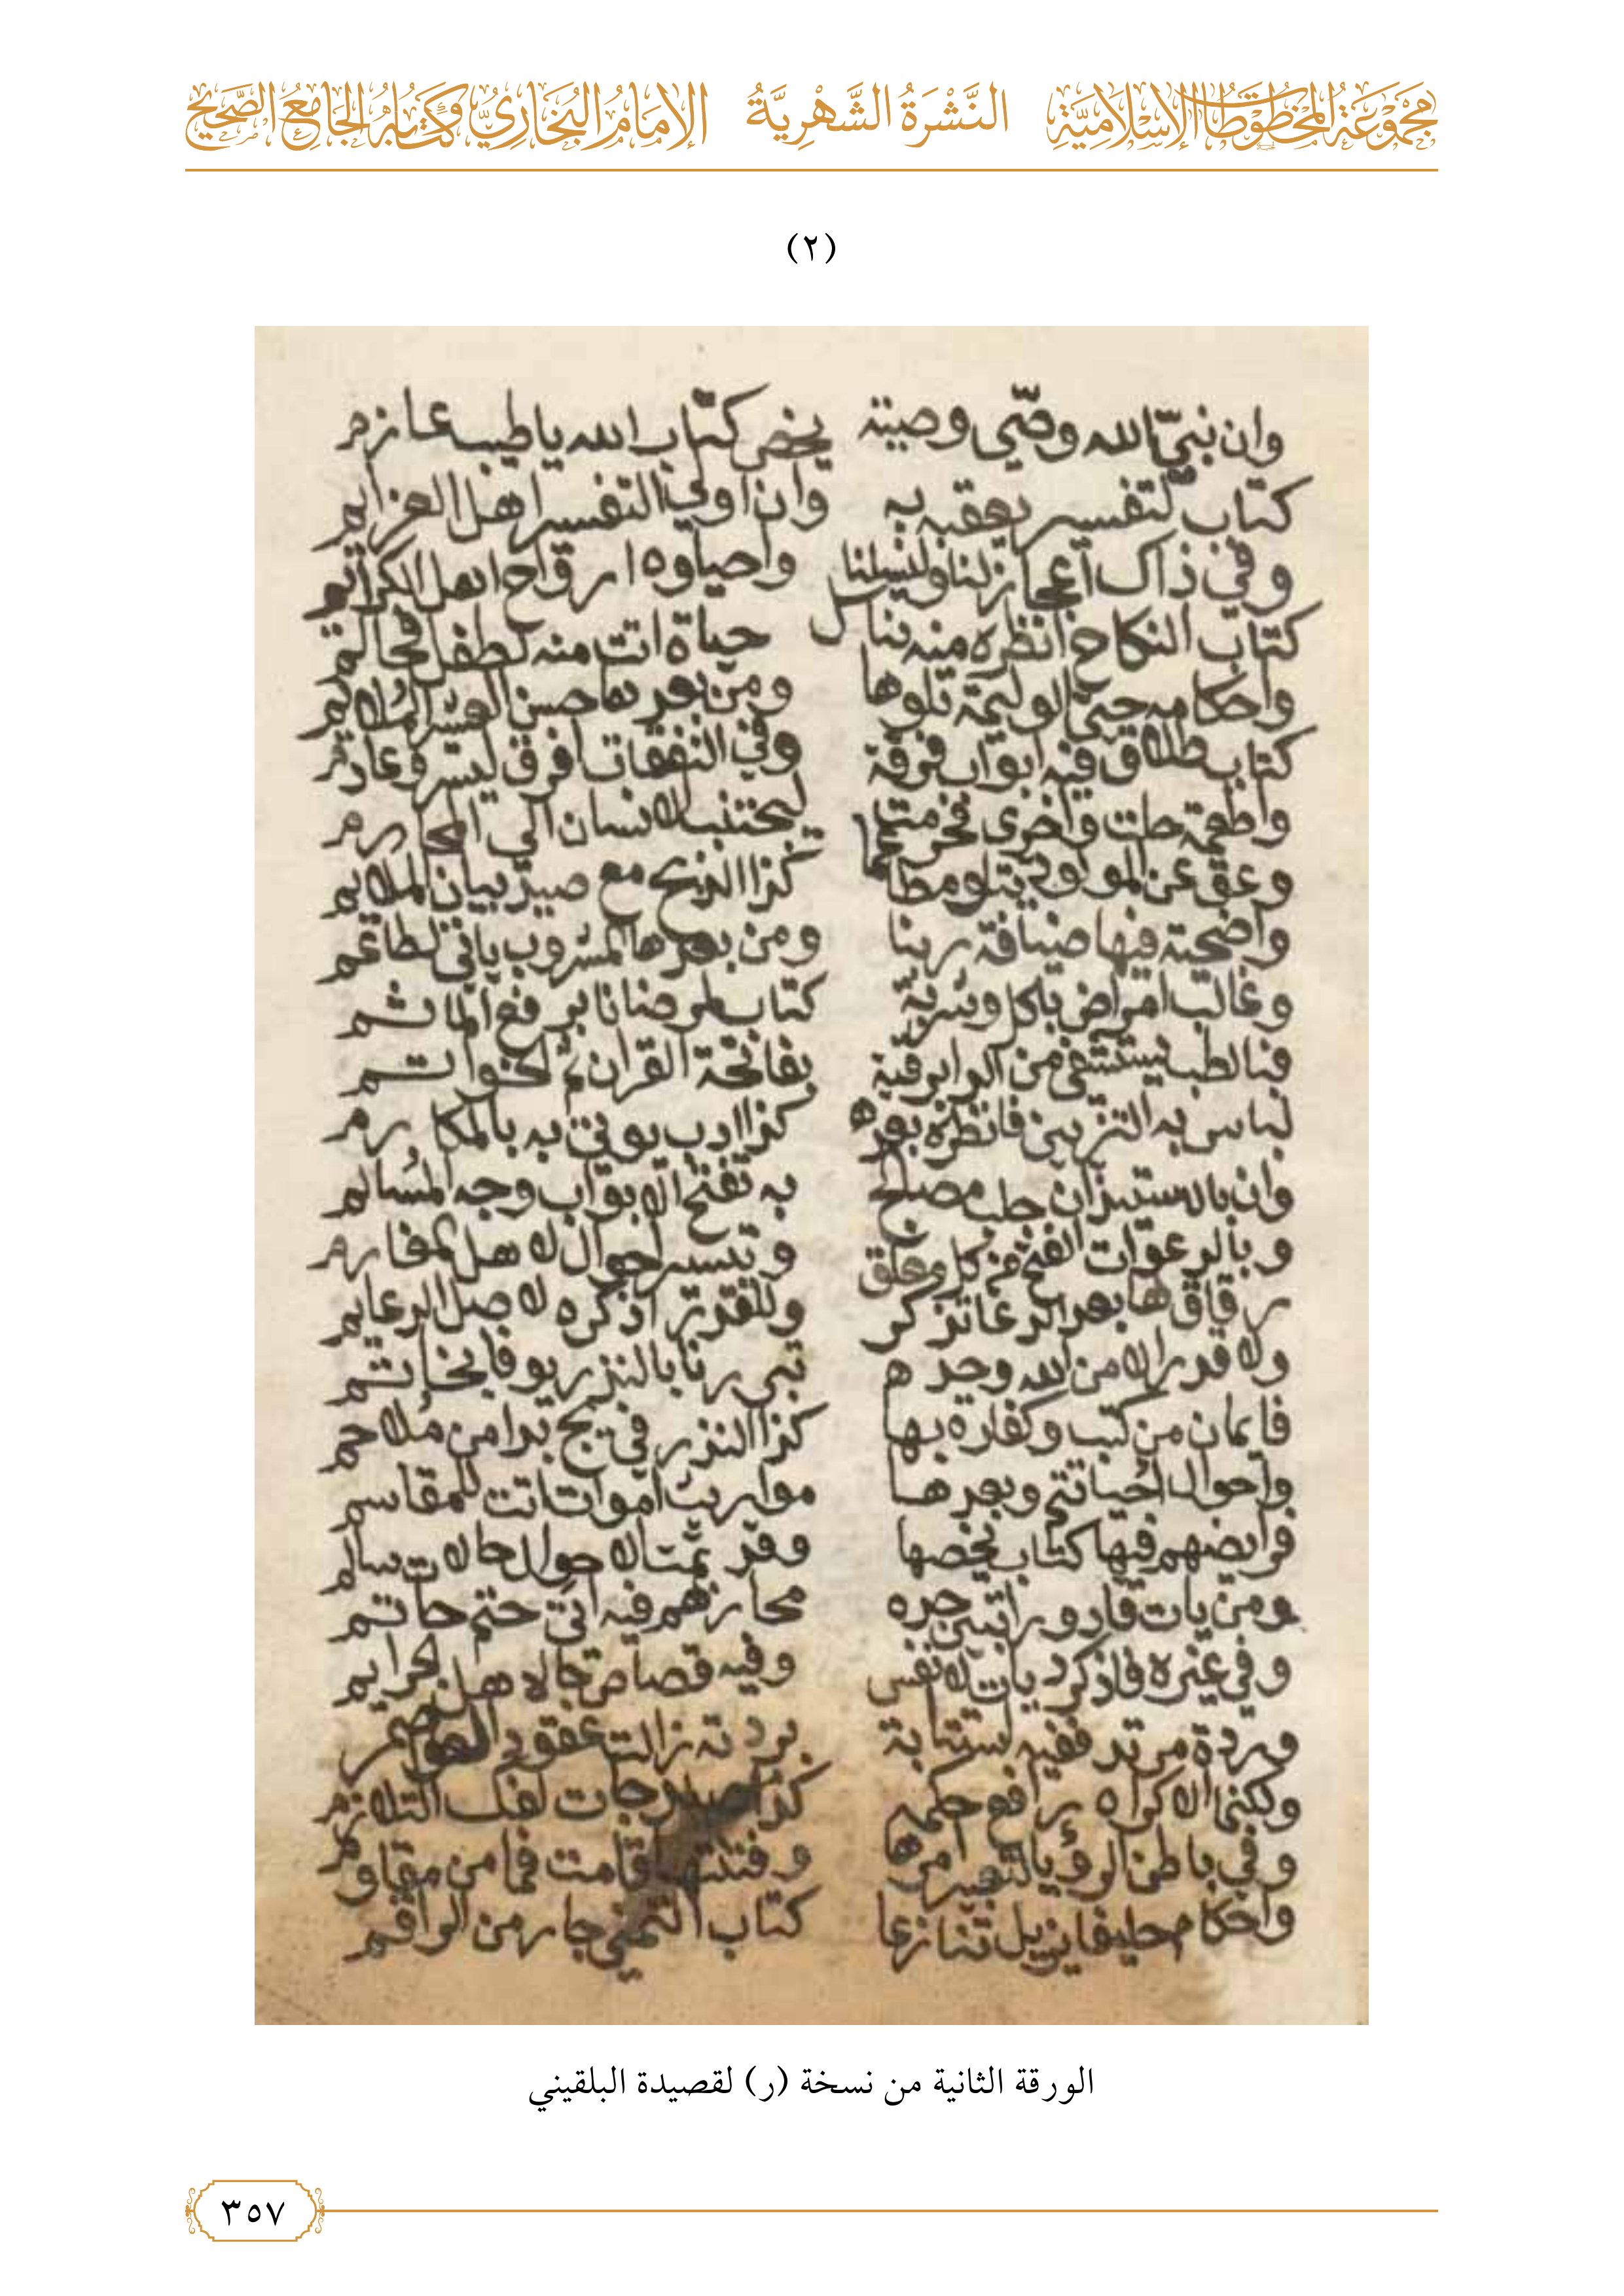 مجموعة المخطوطات الإسلامية النَّشْرَةُ الشَّهْرِيَّةُ الإمام البخاري وكتابه الجامع الصحيح
(٢)
وان نبيّ الله وصّى وصيته يخص كتاب الله يا طيب عازم
كتاب لتفسير يعقبه به وان اولي التفسير اهل العزايم
وفي ذاك اعجاز لنا ولنسلنا واحياوه ارواح اهل الكرايم
كتاب النكاح انظره منه تناسل حياة اتت منه لطفل
واحكامه حتى الوليمة تلوها ومن بعدها حسن العشير الملايم
كتاب طلاق فيه ابواب فرقة وفي النفقات افرق ليسر وعادم
واطعمة حلت واخرى فحرمت ليجتنب الانسان المحارم
وعق عن المولود يتلو كذا الذبح مع صيد بيان الملايم
واضحية فيها ضيافة ربنا ومن بعدها المشروب ياتي لطاعم
وغالب امراض باكل وشربة كتاب لمرضانا برفع الماثم
فبالطب يستشفى من الدا برقية بفاتحة القران ثم الخواتم
لباس به التزيين فانظره بعده كذا ادب يوتى به بالمكارم
وان بالاستيذان جلت مصالح به تفتح الابواب وجه المسالم
وبالدعوات الفتح من كل مغلق وتيسير احوال لاهل
رقاق بعد الدعا تذكر وللقدر اذكره لاصل الدعايم
ولا قدر الا من الله وحده بالنذر
فايمان من كتب وكفارة بها كذا النذر في بدا من ملاحم
واحوال احيا تتم وبعدها مواريث اموات اتت للمقاسم
فرايضهم فيها كتاب يخصها وقد تمت الاحوال حالات سالم
ومن يات قاذورا تبين حده محاربهم فيه اتى حتم حاتم
وفي غيره فاذكر ديات لانفس وفيه قصاص جا لاهل
وردة مرتد ففيه استتابة بردته زالت عقود
ولكنما الاكراه رافع حكمه كذا جات لفك التلازم
وفي باطن الرؤيا لتعبير امرها وفتنتها قامت فما من مقاوم
واحكام يزيل تنازعا كتاب التمني جا رمز
الورقة الثانية من نسخة (ر) لقصيدة البلقيني
٣٥٧